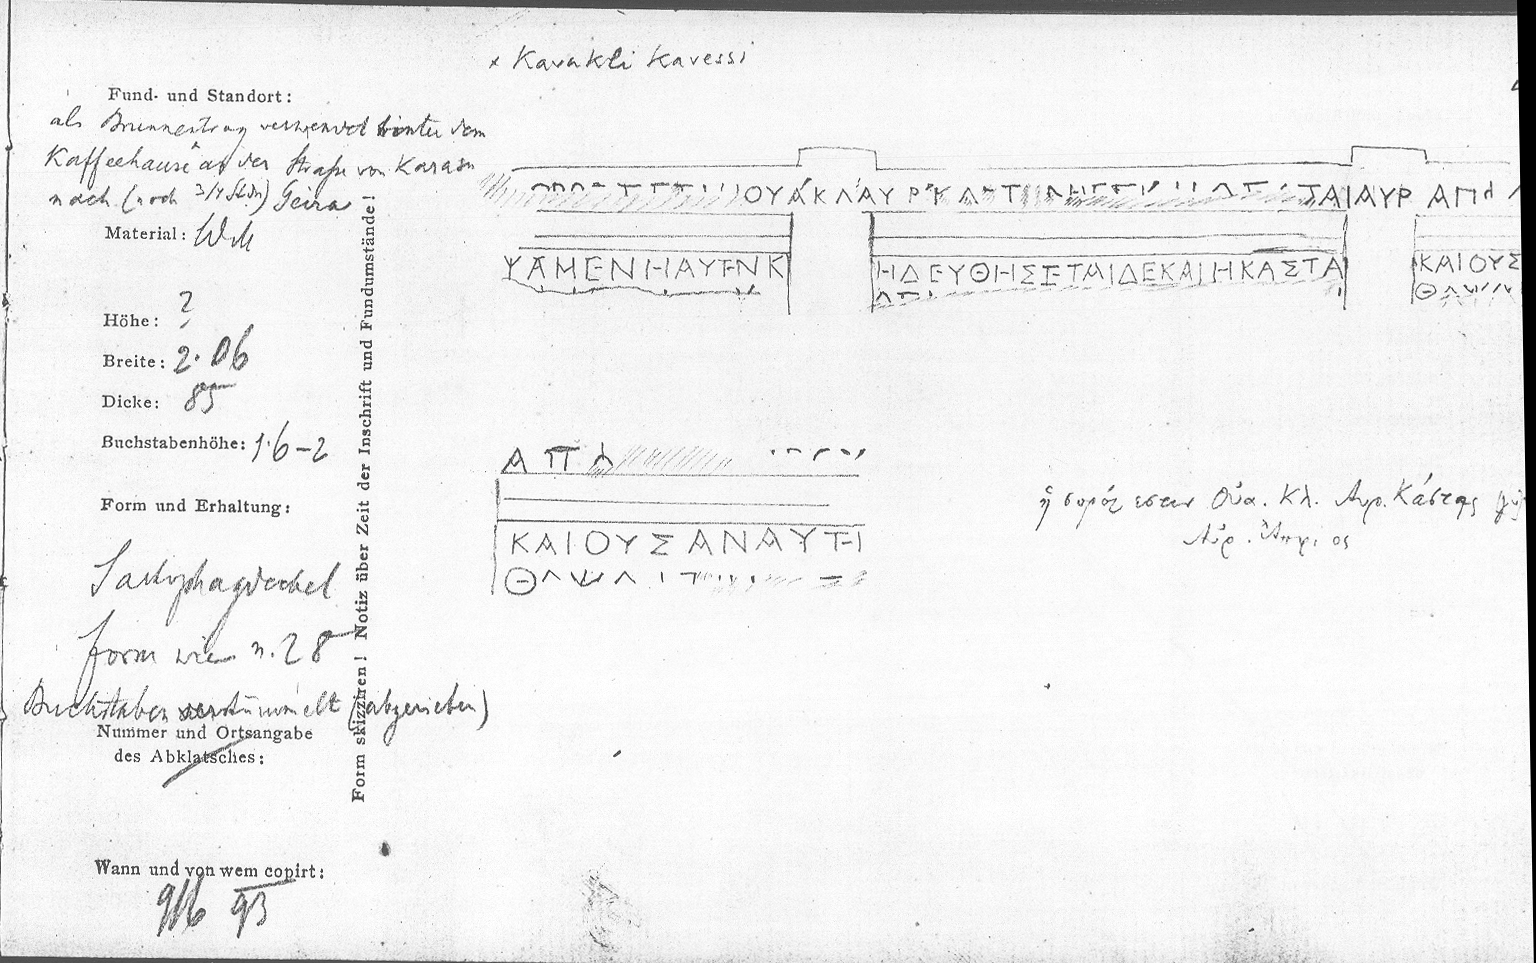 × Kavakli Kavessi
Fund- und Standort:
als Brunnentrog verwendet hinter dem
Kaffeehause an der Straße von Karasu
nach (noch 3/4 Stdn) Geira
Material: WM
Höhe: ?
Breite: 2.06
Dicke: 85
Buchstabenhöhe: 1.6–2
Form und Erhaltung:
Sarkophagdeckel
form wie n. 28
Buchstaben verstümmelt (abgerieben)
Nummer und Ortsangabe
des Abklatsches:
Wann und von wem copirt:
9/6 93
Form skizziren! Notiz über Zeit der Inschrift und Fundumstände!
ΟΥΑΚΛΑΥΡ ΤΑΙΑΥΡ ΑΠ
ΨΑΜΕΝΗΑΥΤΗΝΚ
ΗΔΕΥΘΗΣΕΤΑΙΔΕΚΑΙΗΚΑΣΤΑ
ΚΑΙΟΥΣ
Θ
ΑΠ
ΚΑΙΟΥΣΑΝΑΥΤΗ
Θ
ἡ σορός εστιν Οὐα. Κλ. Αυρ. Κάστας
Αὐρ.